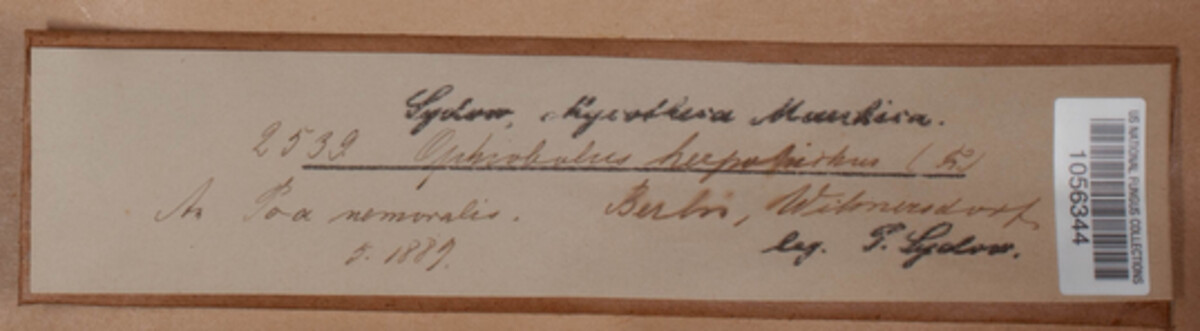 Sydow, Mycotheca Marchica.
2539 Ophiobolus herpotrichus (Fr.)
An Poa nemoralis. Berlin, Wilmersdorf
5. 1889. leg. P. Sydow.
US NATIONAL FUNGUS COLLECTIONS
10563444